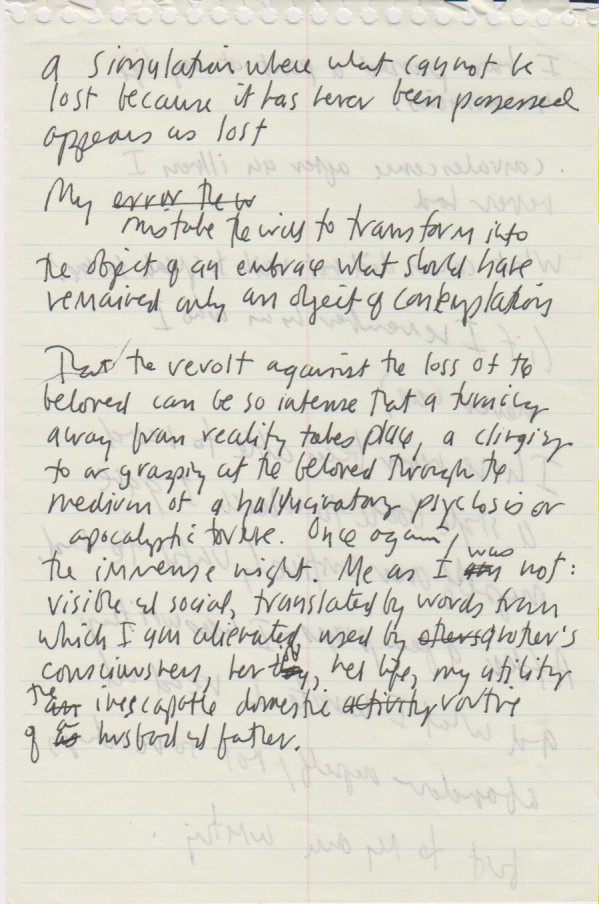 a simulation where what cannot be
lost because it has never been possessed
appears as lost
My error the w
mistake the will to transform into
the object of an embrace what should have
remained only an object of contemplation
That the revolt against the loss of the
beloved can be so intense that a turning
away from reality takes place, a clinging
to or grasping at the beloved through the
medium of a hallucinatory psychosis or
apocalyptic torture. Once again,
the immense night. Me as I was not:
visible and social, translated by words from
which I am alienated, used by others another's
consciousness, her, her life, my utility
the inescapable domestic activity routine
of a husband and father.